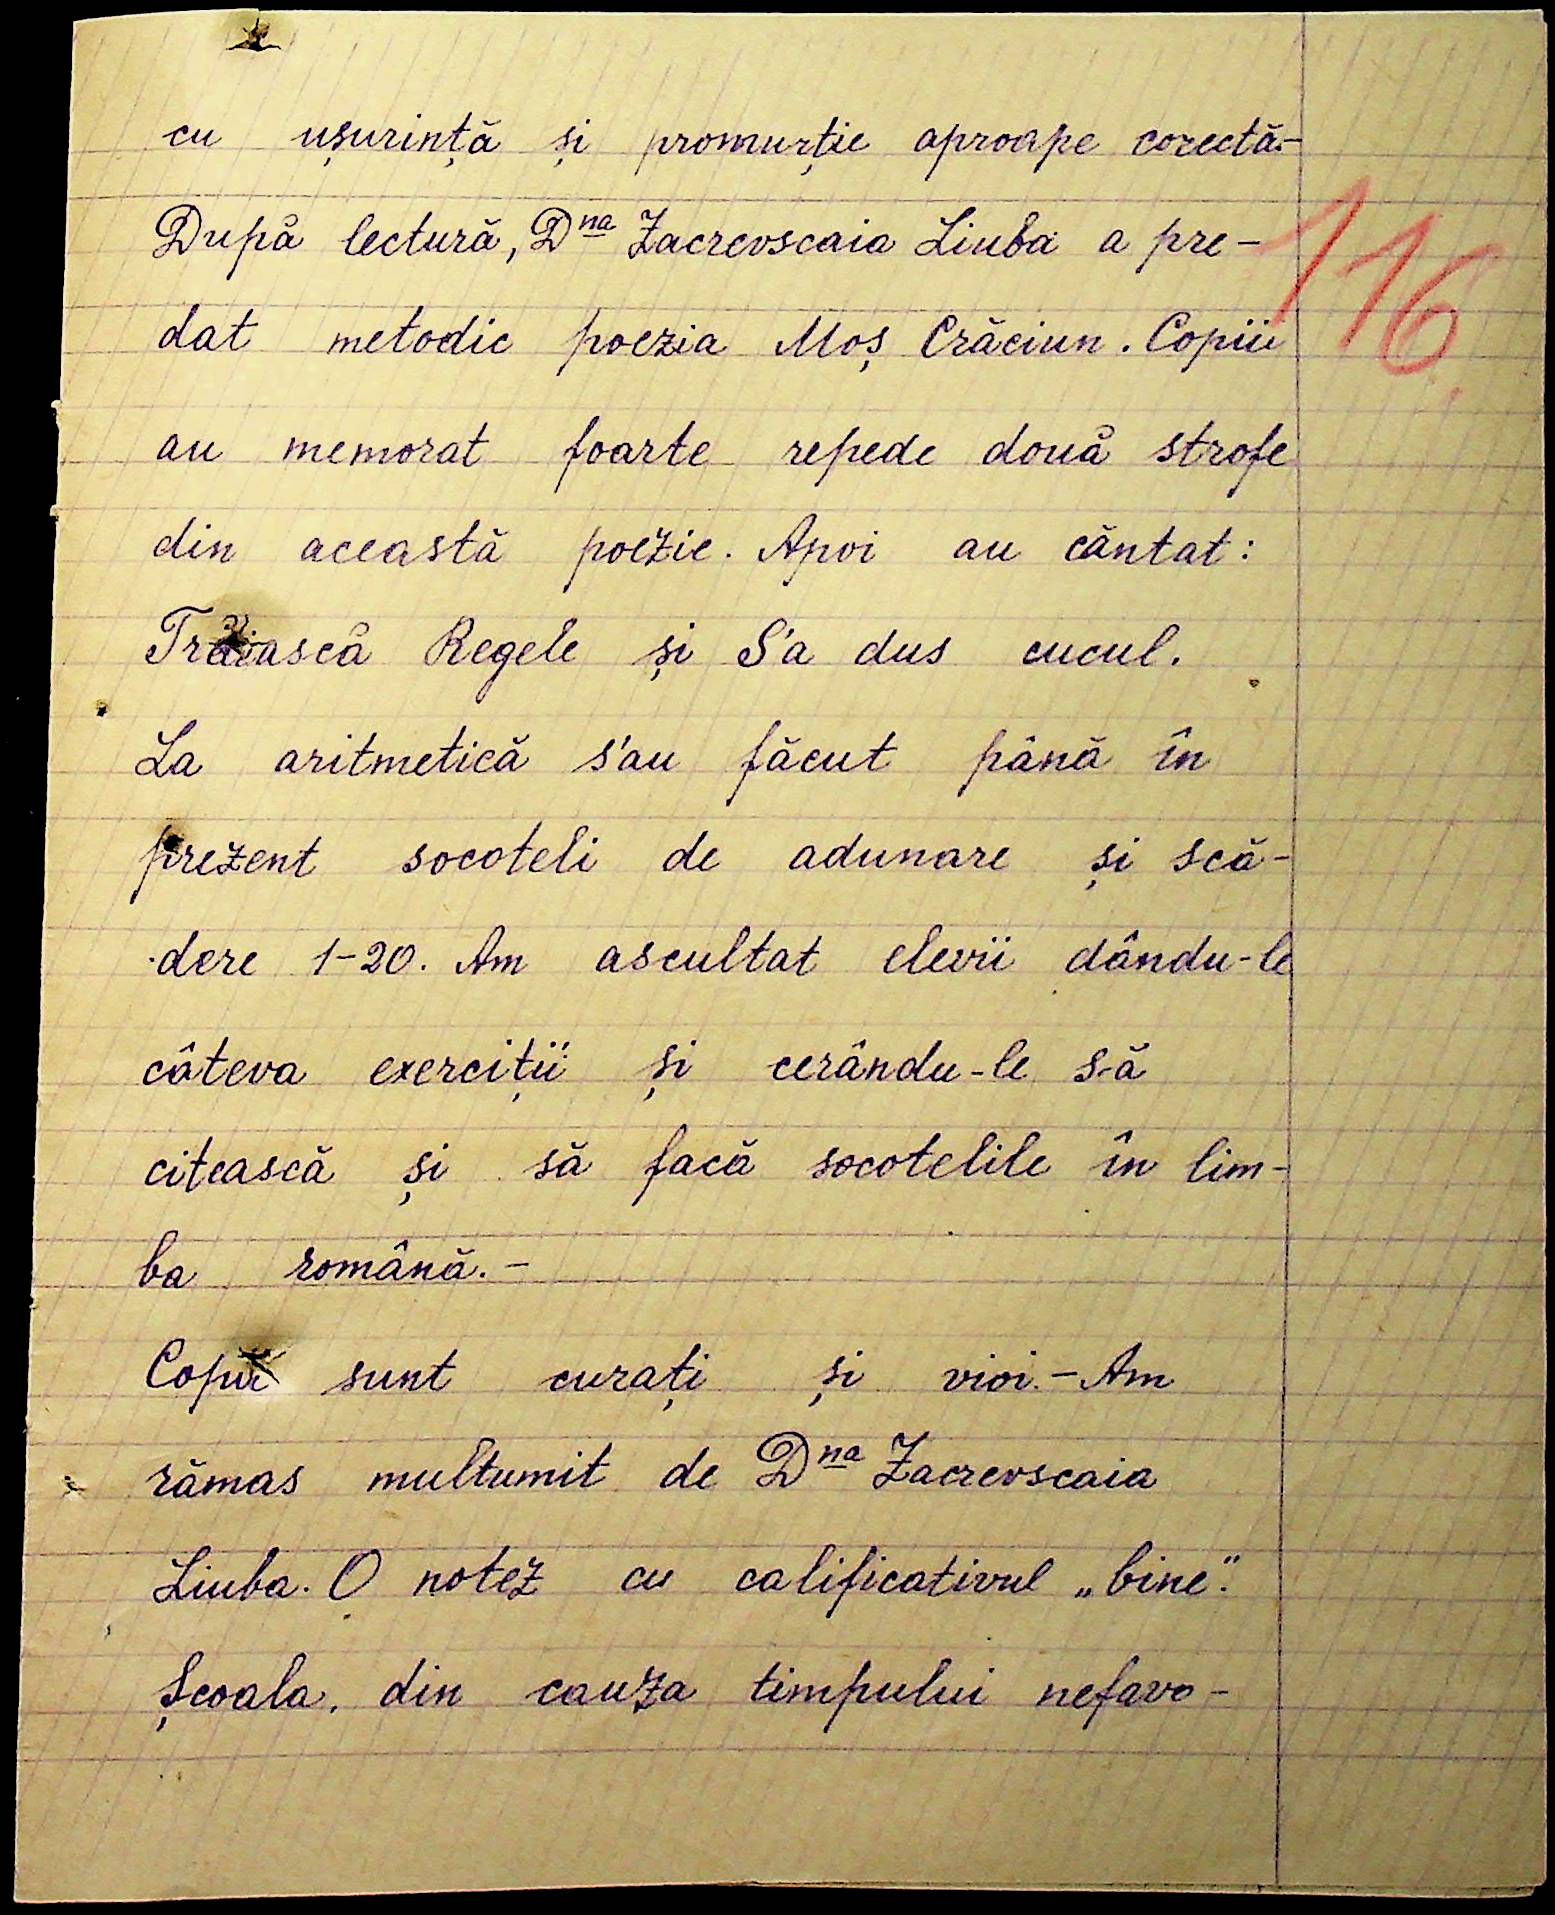 cu ușurință și promurție aproape corectă.-
După lectură, Dna Zacrevscaia Liuba a pre-
116.
dat metodic poezia Moș Crăciun. Copiii
au memorat foarte repede două strofe
din această poezie. Apoi au cântat:
Trăiască Regele și S'a dus cucul.
La aritmetică s'au făcut până în
prezent socoteli de adunare și scă-
dere 1-20. Am ascultat elevii dându-le
câteva exerciții și cerându-le s-ă
citească și să facă socotelile în lim-
ba română.-
Copii sunt curați și vioi.- Am
rămas multumit de Dna Zacrevscaia
Liuba. O notez cu calificativul „bine".
Școala, din cauza timpului nefavo-